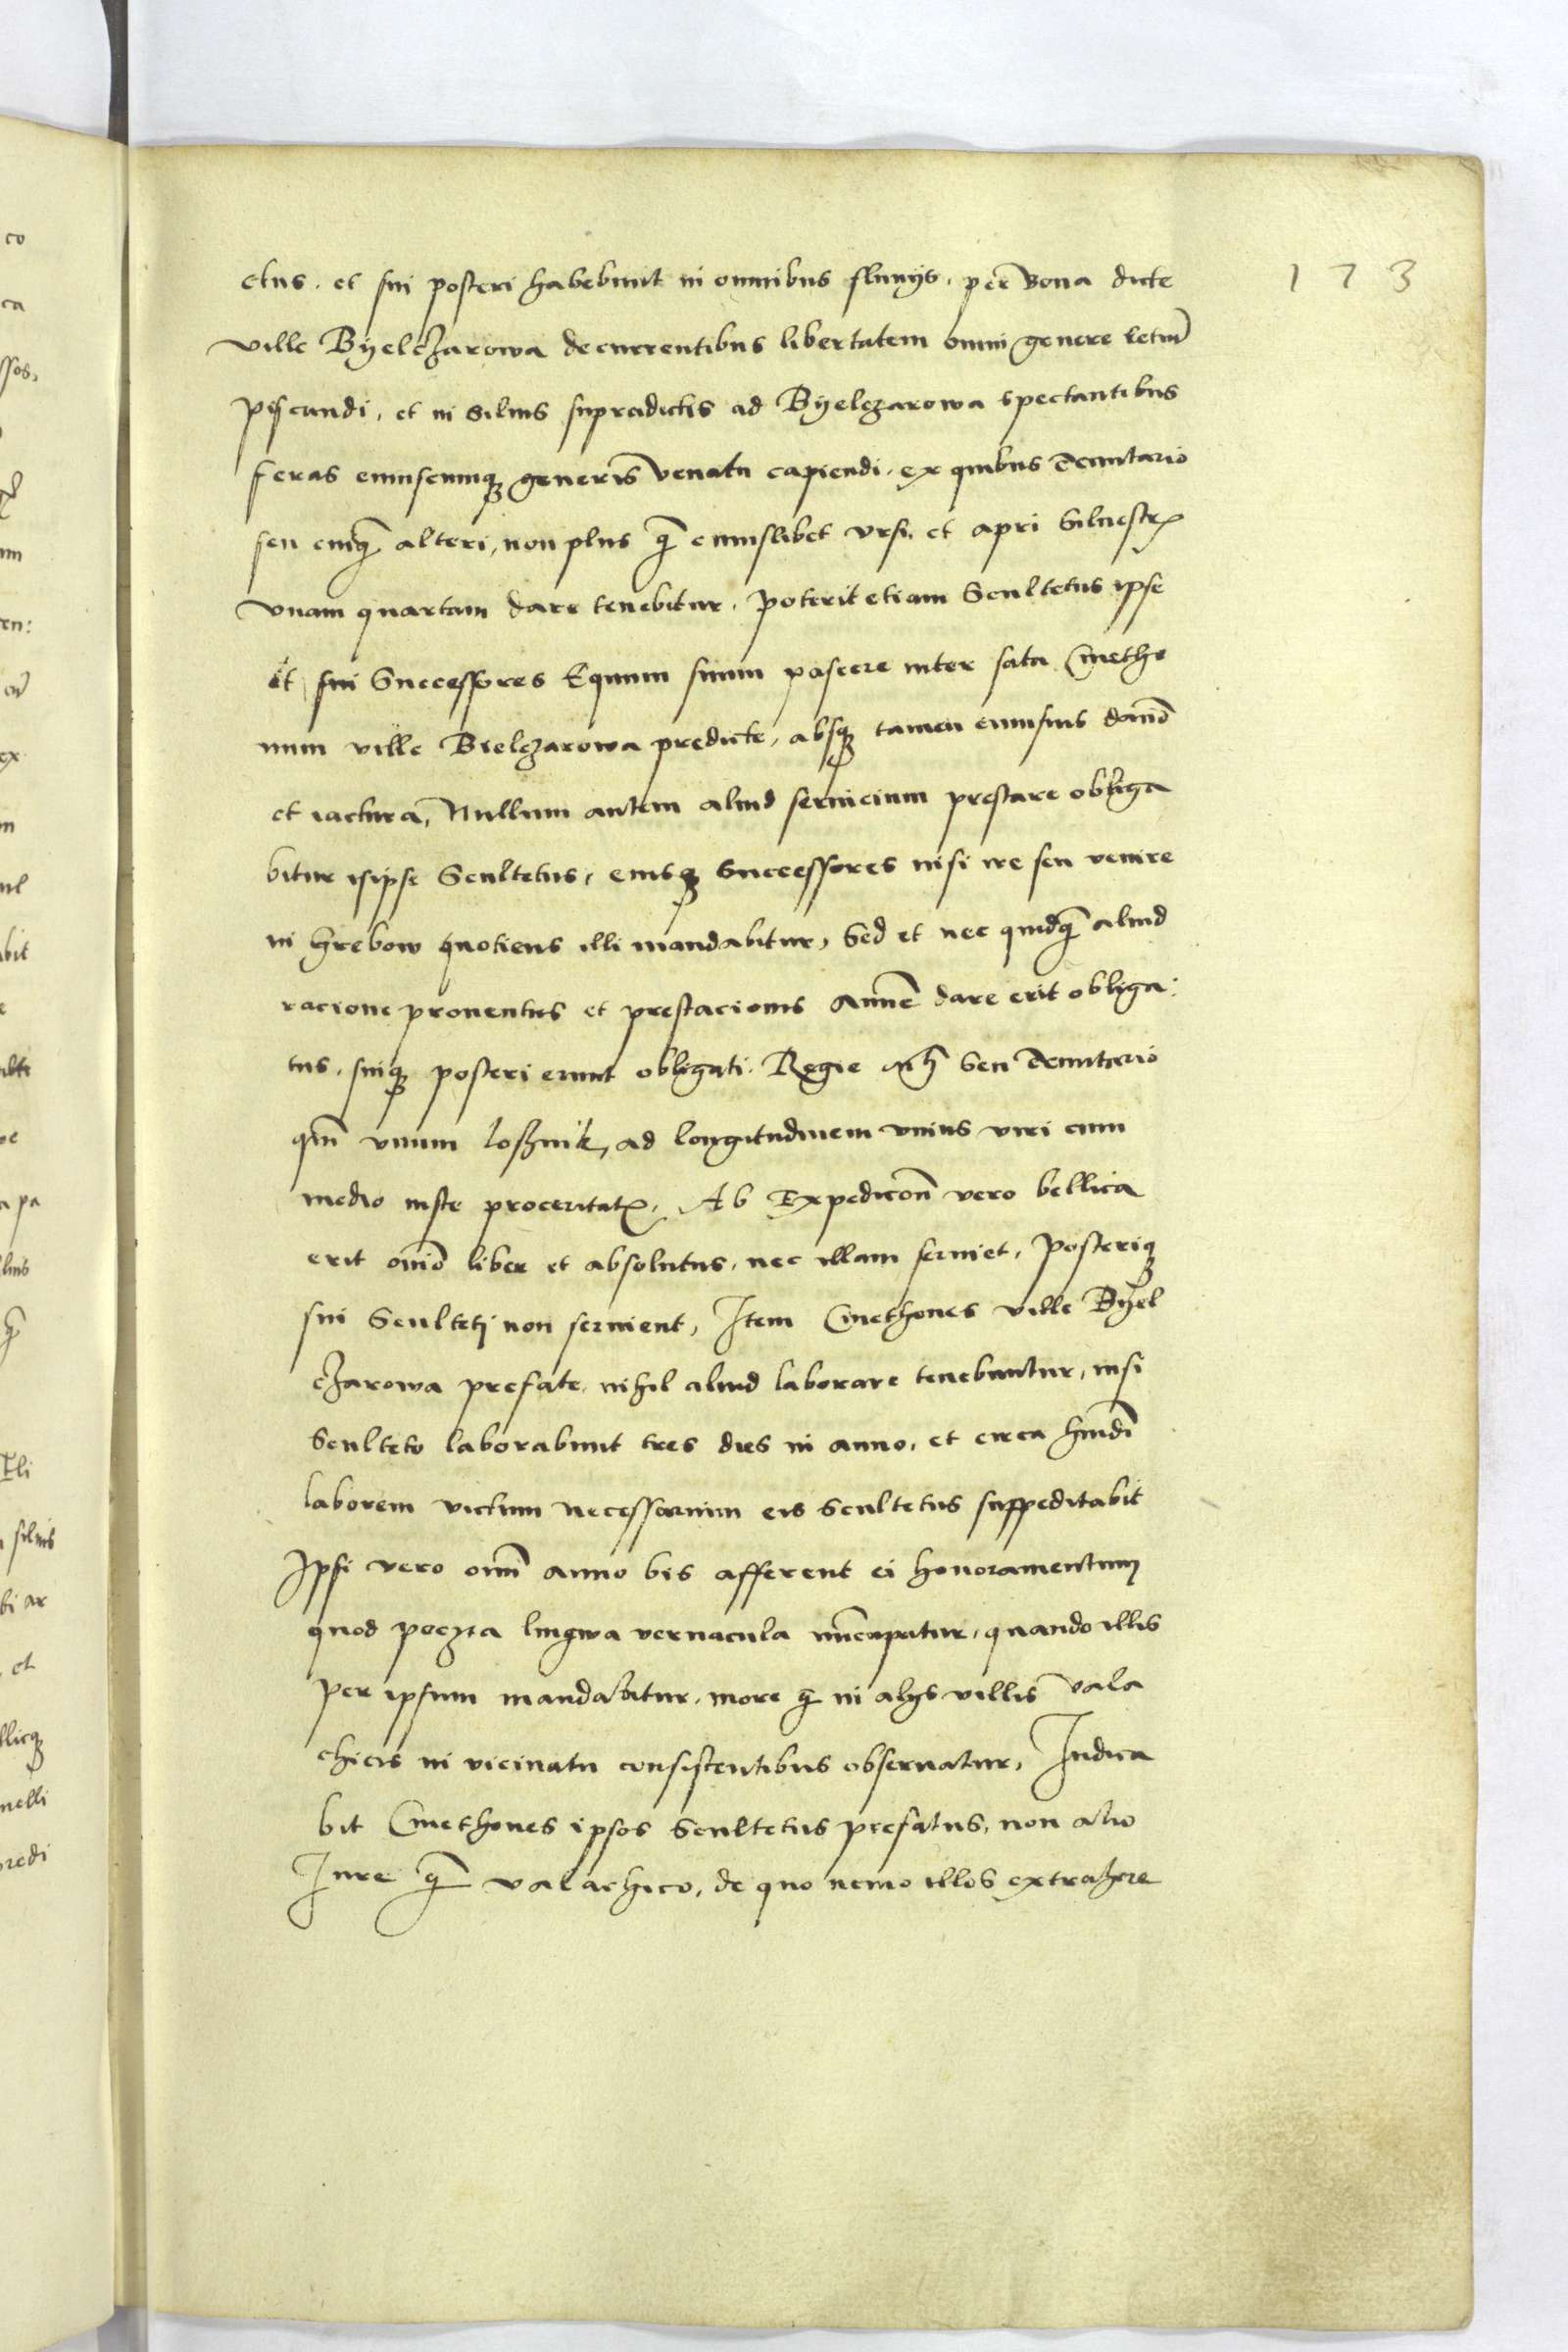 173
ctus, et sui posteri habebunt in omnibus fluuijs, per bona dicte
ville Byelczarowa decurrentibus libertatem omni genere retiũ
piscandi, et in siluis supradictis ad Byelczarowa spectantibus
feras cuiuscumq generis venatu capiendi, ex quibus Tenutario
seu cuiq̃ alteri, non plus q̃ cuiuslibet vrsi, et apri siluestr
vnam quartam dare tenebitur. Poterit etiam Scultetus ipse
et sui Successores Equum suum pascere inter sata Cmetho
num ville Bielczarowa predicte, absq tamen cuiusuis damno
et iactura, Nullum autem aliud seruicium prestare obliga
bitur isipse Scultetus, eiusq Successores nisi ire seu venire
in Grebow quotiens illi mandabitur, Sed et nec quidq̃ aliud
racione prouentus et prestacionis Annue dare erit obliga:
tus, suiq posteri erunt obligati, Regie Mti Seu Tenutario
qm̃ vnum losznik, ad longitudinem vnius viri cum
medio iuste proceritat, Ab Expediconẽ vero bellica
erit omnĩo liber et absolutus, nec illam seruiet, posteriq
sui Sculteti non seruient, Item Cmethones ville Byel
czarowa prefate, nihil aliud laborare tenebuntur, nisi
Sculteto laborabunt tres dies in anno, et circa hmõi
laborem victum necessarium eis scultetus suppeditabit
Ipsi vero omni anno bis afferent ei honoramentum
quod poczta lingwa vernacula nũcupatur, quando illis
per ipsum mandabitur, more q̃ in alijs villis vala
chicis in vicinatu consistentibus obseruatur, Iudica
bit Cmethones ipsos Scultetus prefatus, non alio
Iure q̃ valachico, de quo nemo illos extrahere